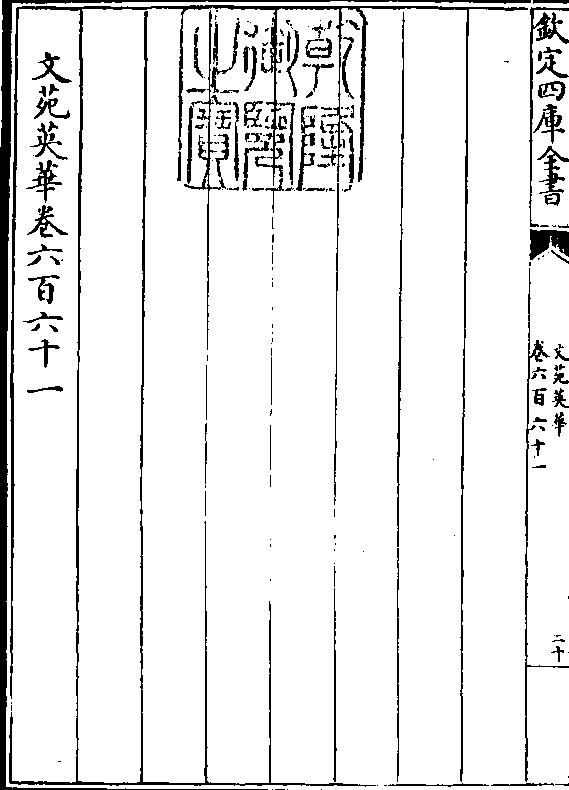 欽定四庫全書
文苑英華
卷六百六十一
二十
乾隆
御覽
之寶
文苑英華卷六百六十一